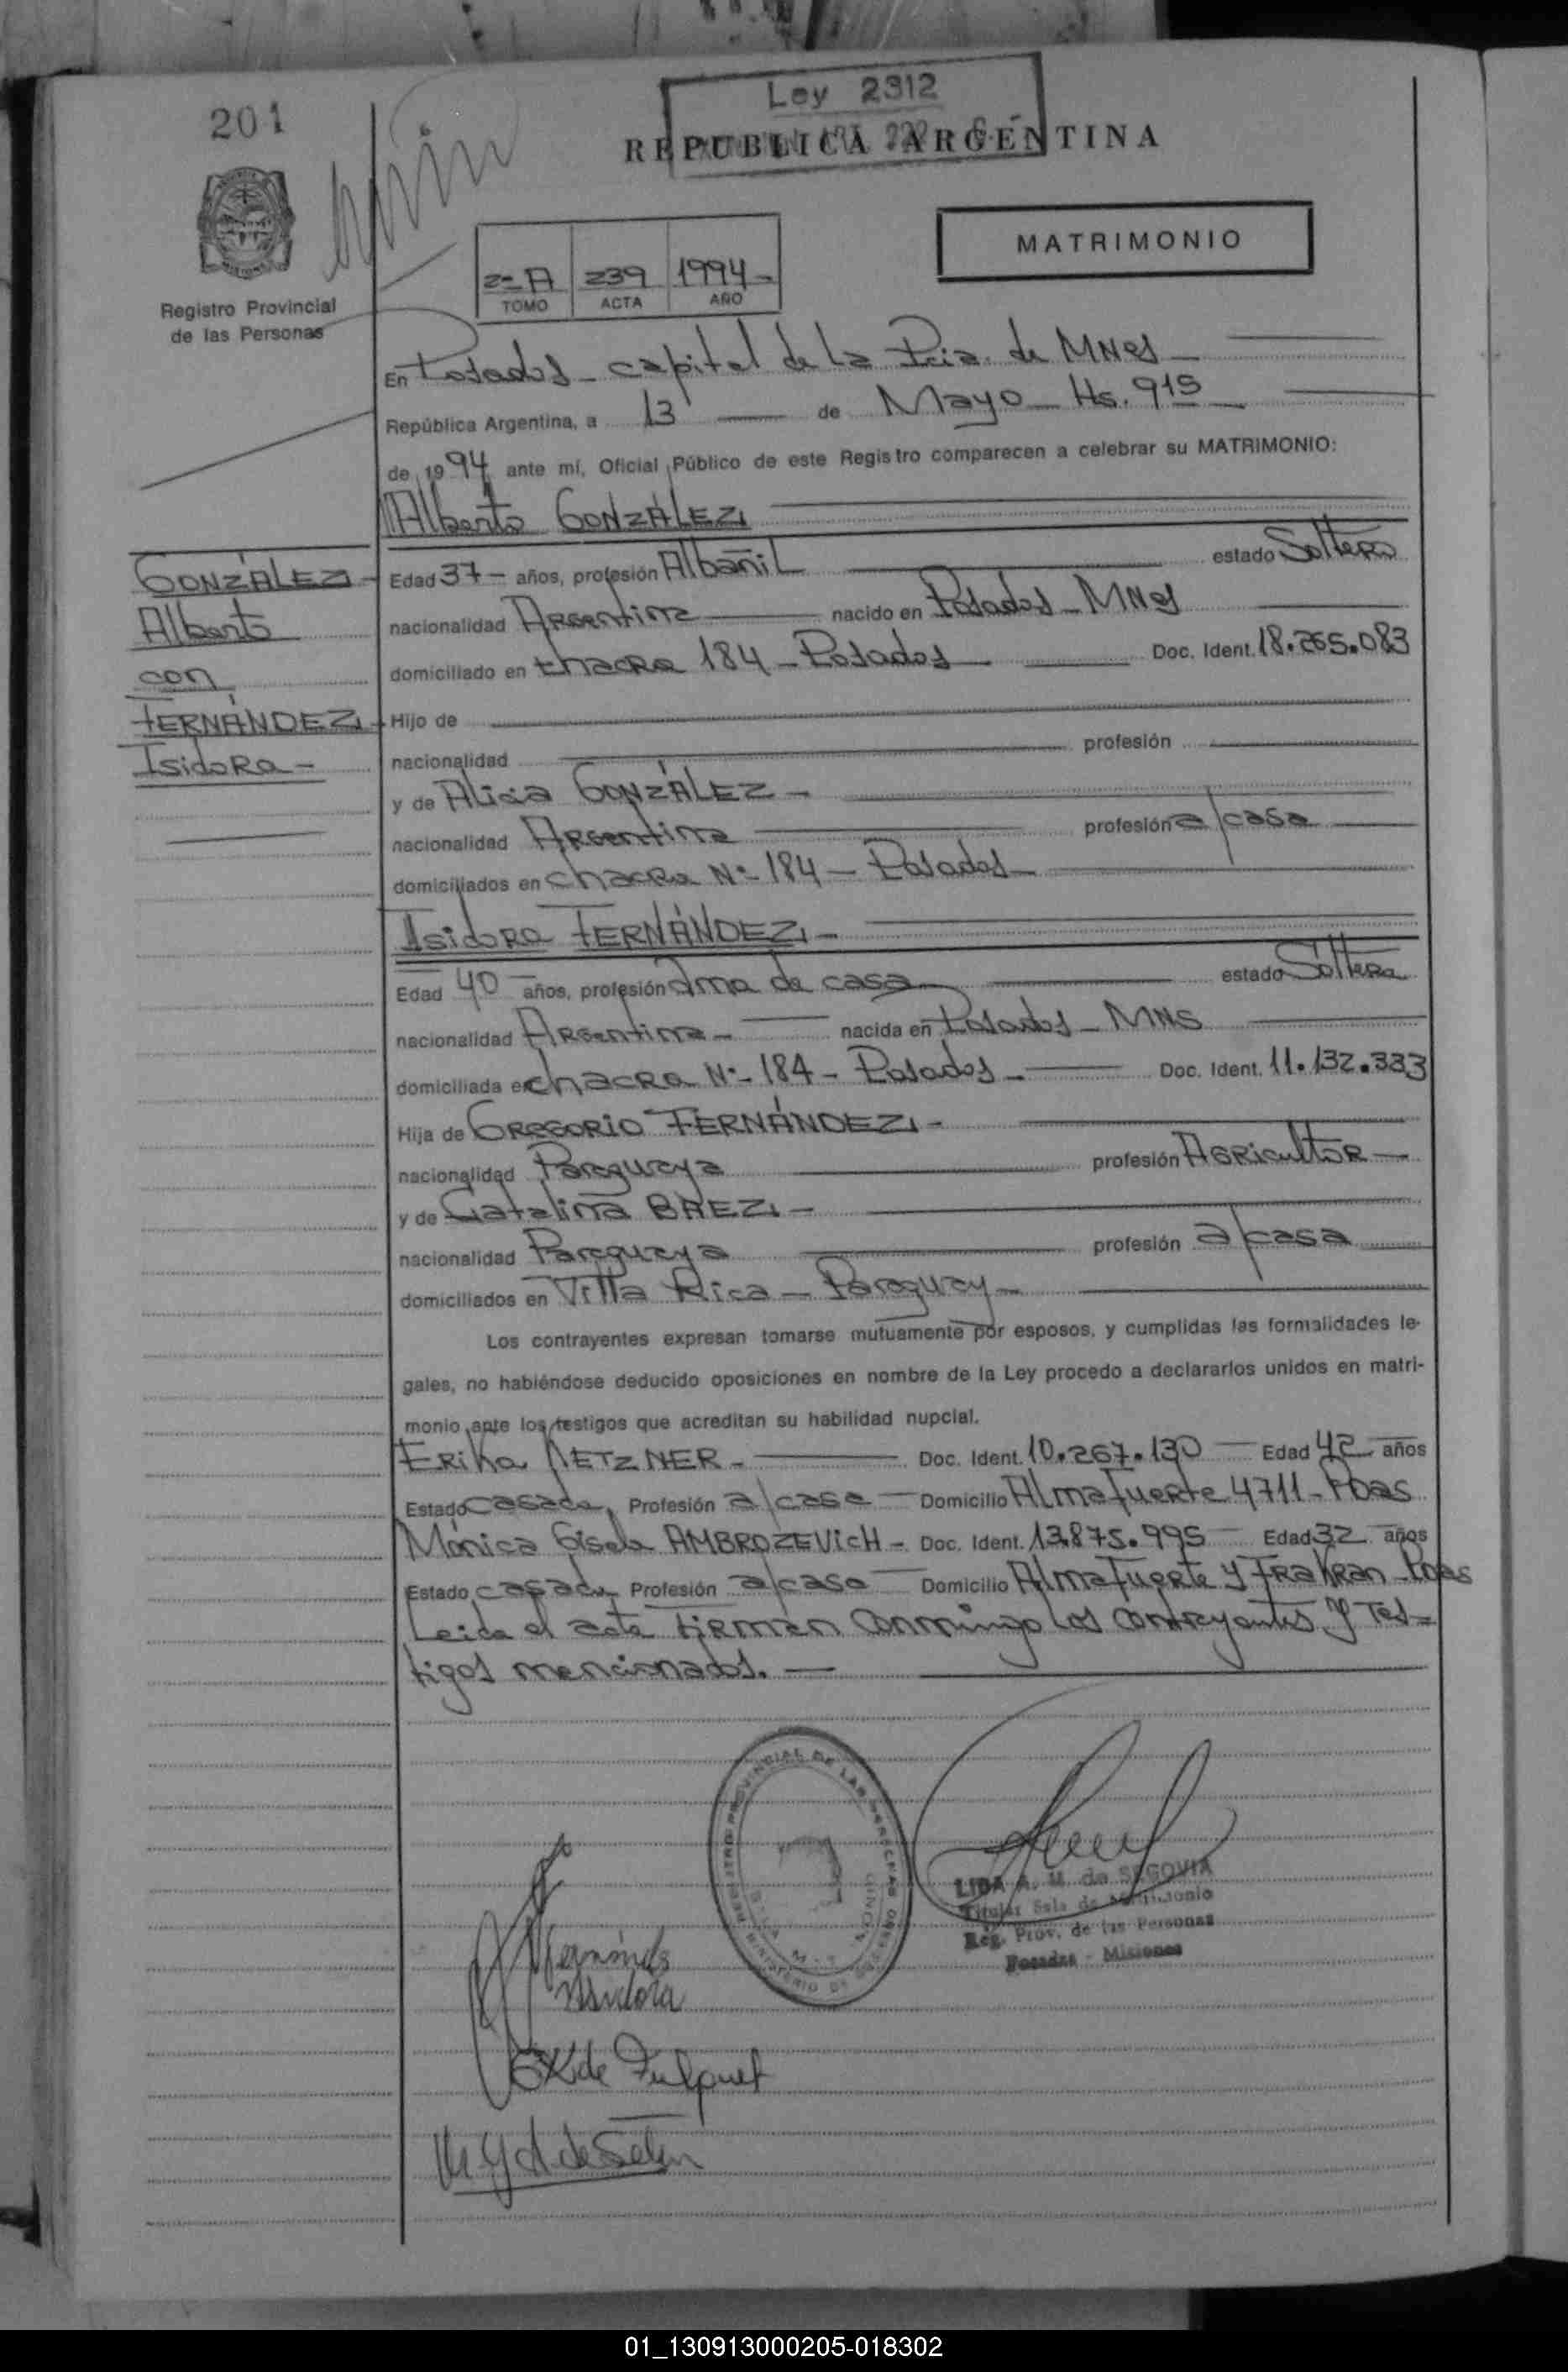 Ley 2312
201
REPUBLICA ARGENTINA
MATRIMONIO
2º A 239 1994-
TOMO ACTA AÑO
Registro Provincial
de las Personas
En Posadas - capital de la Pcia. de MNes -
República Argentina, a 13 de Mayo - Hs. 915
de 1994 ante mí, Oficial Público de este Registro comparecen a celebrar su MATRIMONIO:
Alberto GONZÁLEZ
GONZÁLEZ -
Alberto
con
FERNÁNDEZ -
Isidora -
Edad 37 - años, profesión Albañil estado Soltero
nacionalidad Argentina nacido en Posadas - MNes
domiciliado en chacra 184 - Posadas Doc. Ident. 18.265.083
Hijo de
nacionalidad profesión
y de Alicia GONZÁLEZ -
nacionalidad Argentina profesión a/casa
domiciliados en chacra Nº 184 - Posadas -
Isidora FERNÁNDEZ -
Edad 40 años, profesión Ama de casa estado Soltera
nacionalidad Argentina - nacida en Posadas - MNS
domiciliada en chacra Nº 184 - Posadas - Doc. Ident. 11.132.333
Hija de GREGORIO FERNÁNDEZ -
nacionalidad Paraguaya profesión Agricultor -
y de Catalina BAEZ -
nacionalidad Paraguaya profesión a/casa
domiciliados en Villa Rica - Paraguay -
Los contrayentes expresan tomarse mutuamente por esposos, y cumplidas las formalidades le-
gales, no habiéndose deducido oposiciones en nombre de la Ley procedo a declararlos unidos en matri-
monio ante los testigos que acreditan su habilidad nupcial.
Erika KETZNER - Doc. Ident. 10.267.130 Edad 42 años
Estado casada, Profesión a/casa - Domicilio Almafuerte 4711 - Pdas
Mónica Gisela AMBROZEVICH - Doc. Ident. 13.875.995 Edad 32 años
Estado casada Profesión a/casa Domicilio Almafuerte y Trakran - Pdas
Leida el acta firman conmingo los contrayentes y tes=
tigos mencionados. -
REGISTRO PROVINCIAL DE LAS PERSONAS
LIDA A. M. de SEGOVIA
Titular Sala de Matrimonio
Reg. Prov. de las Personas
Posadas - Misiones
Fernández
Isidora
EK de Fulquet
01_130913000205-018302